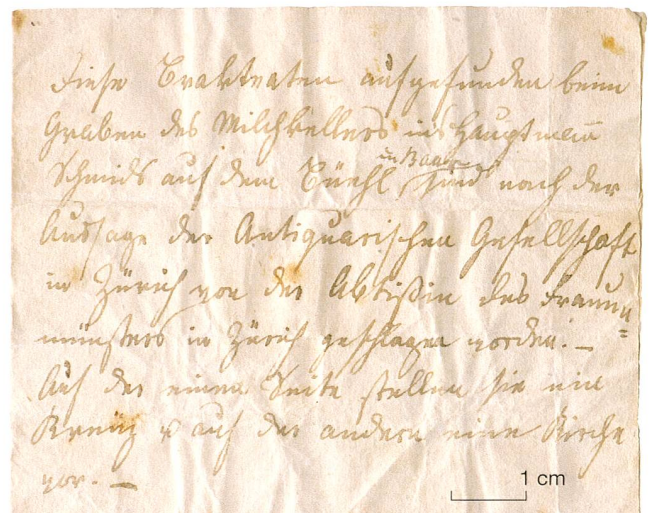 Diese Brakteaten aufgefunden beim
Graben des Milchkellers ins Hauptmañ
in Baar
Schmids auf dem Büehl sind nach der
Aussage der Antiquarischen Gesellschaft
in Zürich von der Abtißin des Fraum̄=
münsters in Zürich geschlagen worden. –
Auf der einen Seite stellen sie ein
Kreuz u auf der andern eine Kirche
vor. –
1 cm